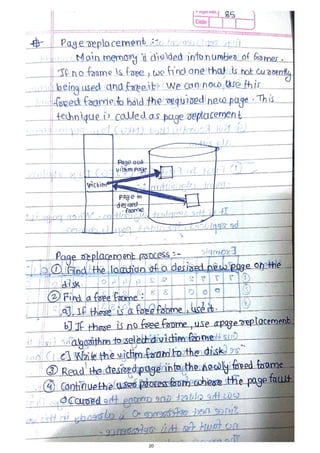 Page No.
Date
85
Page replacement :-
Main memory is divided into number of frames.
If no frame is free, we find one that is not currently
being used and free it. We can now use this
freed frame to hold the required new page. This
technique is called as page replacement
Page out
victim page
victim
Page in
desired
frame
Page replacement process :-
① Find the location of a desired new page on the
disk
② Find a free frame :
a]. If there is a free frame, use it.
b] If there is no free frame, use a page replacement
algorithm to select a victim frame
c] Write the victim fram to the disk
③ Read the desired page into the newly freed frame
④ Continue the user process from where the page fault
occured
20